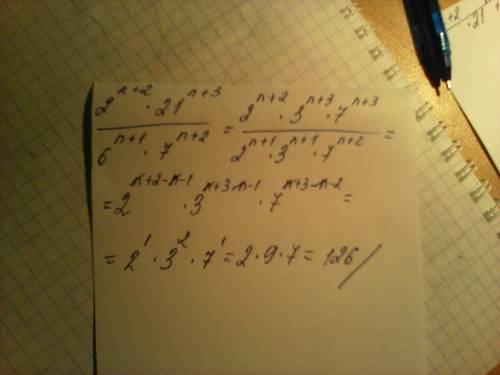 2^{n+2} · 21^{n+3} / 6^{n+1} · 7^{n+2} = 2^{n+2} · 3^{n+3} · 7^{n+3} / 2^{n+1} · 3^{n+1} · 7^{n+2} =
= 2^{n+2-n-1} · 3^{n+3-n-1} · 7^{n+3-n-2} =
= 2^1 · 3^2 · 7^1 = 2 · 9 · 7 = 126 /